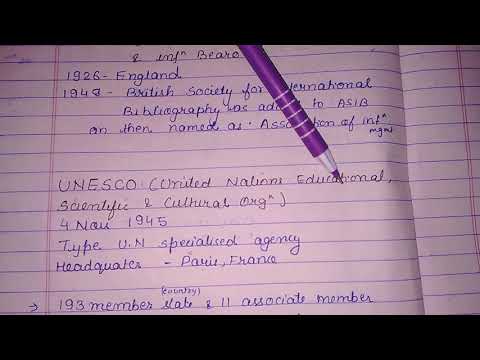 & infⁿ Bearo
1926 - England
1948 - British Society for International
Bibliography was added to ASIB
on then named as . Association of infⁿ
mgm
UNESCO (United Nations Educational,
Scientific & Cultural Orgⁿ)
4 Nov 1945
Type U.N specialised agency
Headquates - Paris, France
(country)
→ 193 member state & 11 associate member